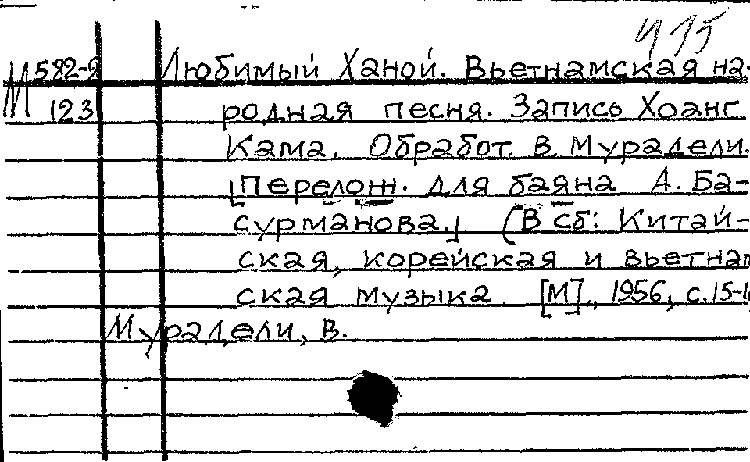 475
М 582-9 Любимый Ханой. Вьетнамская на-
123 родная песня. Запись Хоанг
Кама. Обработ. В. Мурадели.
[Перелож. для баяна А. Ба-
сурманова.] (В сб: Китай-
ская, корейская и вьетнам
ская музыка. [М]., 1956, с. 15-
Мурадели, В.